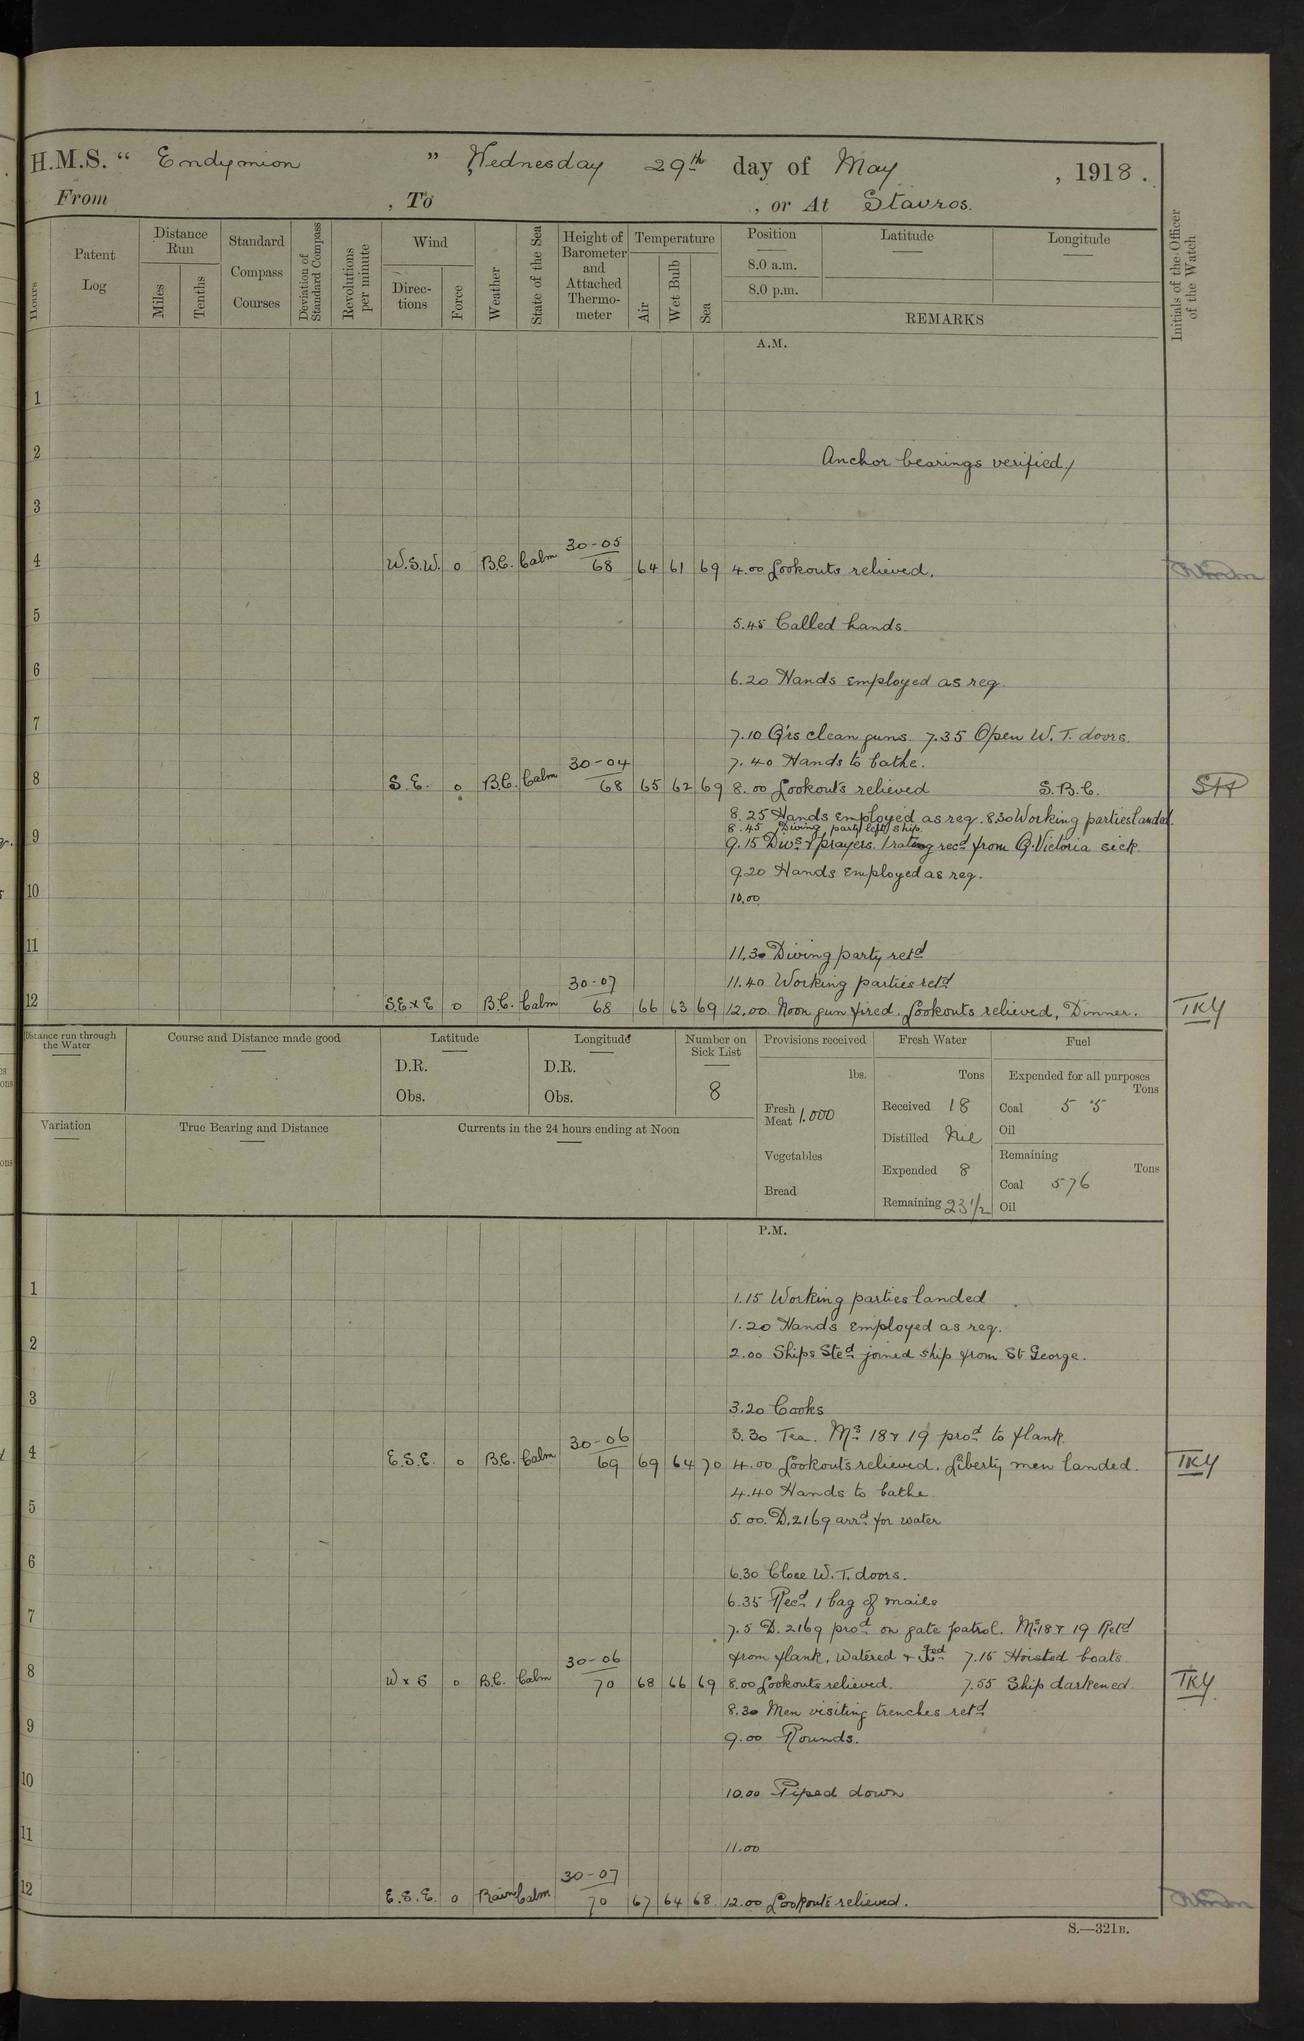 H.M.S. “ Endymion ” Wednesday 29th day of May, 1918.
From , To , or At Stavros.
Hours
Patent Log
Distance Run
Miles
Tenths
Standard Compass Courses
Deviation of Standard Compass
Revolutions per minute
Wind
Directions
Force
Weather
State of the Sea
Height of Barometer and Attached Thermometer
Temperature
Air
Wet Bulb
Sea
Position
8.0 a.m.
8.0 p.m.
Latitude
Longitude
REMARKS
Initials of the Officer of the Watch
A.M.
1
2 Anchor bearings verified/
3
4 W.S.W. 0 B.C. Calm 30-05 68 64 61 69 4.00 Lookouts relieved.
5 5.45 Called hands.
6 6.20 Hands employed as req.
7 7.10 Q'rs clean guns. 7.35 Open W.T. doors.
7.40 Hands to bathe.
8 S.E. 0 B.C. Calm 30-04 68 65 62 69 8.00 Lookouts relieved S.B.C.
8.25 Hands employed as req. 8.30 Working parties landed.
8.45 Diving party left ship.
9 9.15 Divs & prayers. 1 rating recd from Q. Victoria sick.
9.20 Hands employed as req.
10 10.00
11 11.30 Diving party retd
11.40 Working parties retd
12 S.E x E 0 B.C. Calm 30-07 68 66 63 69 12.00 Noon gun fired. Lookouts relieved, Dinner. TKY
Distance run through the Water
Course and Distance made good
Latitude
D.R.
Obs.
Longitude
D.R.
Obs.
Number on Sick List
8
Provisions received
lbs.
Fresh Meat 1.000
Vegetables
Bread
Fresh Water
Tons
Received 18
Distilled Nil
Expended 8
Remaining 23 1/2
Fuel
Expended for all purposes
Tons
Coal 5 .5
Oil
Remaining
Tons
Coal 576
Oil
Variation
True Bearing and Distance
Currents in the 24 hours ending at Noon
P.M.
1 1.15 Working parties landed
1.20 Hands employed as req.
2 2.00 Ships Sted joined ship from St George.
3 3.20 Cooks
3.30 Tea. Ms 18 & 19 prod to flank.
4 E.S.E. 0 B.C. Calm 30-06 69 69 64 70 4.00 Lookouts relieved. Liberty men landed. TKY
4.40 Hands to bathe
5 5.00. D.2169 arrd for water
6 6.30 Close W.T. doors.
6.35 Recd 1 bag of mails
7 7.5 D.2169 prod on gate patrol. Ms 18 & 19 Retd
from flank, watered & 7.15 Hoisted boats.
8 W x S 0 B.C. Calm 30-06 70 68 66 69 8.00 Lookouts relieved. 7.55 Ship darkened. TKY
8.30 Men visiting trenches retd
9 9.00 Rounds.
10 10.00 Piped down
11 11.00
12 E.S.E. 0 Rain Calm 30-07 70 67 64 68 12.00 Lookouts relieved.
S.—321B.